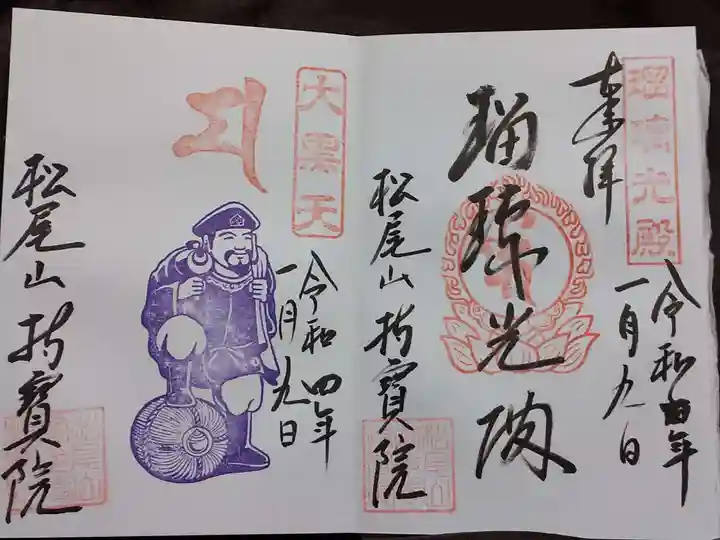 瑠璃光殿
奉拝
令和四年
一月九日
瑠璃光殿
松尾山持寶院
大黒天
令和四年
一月九日
松尾山持寶院